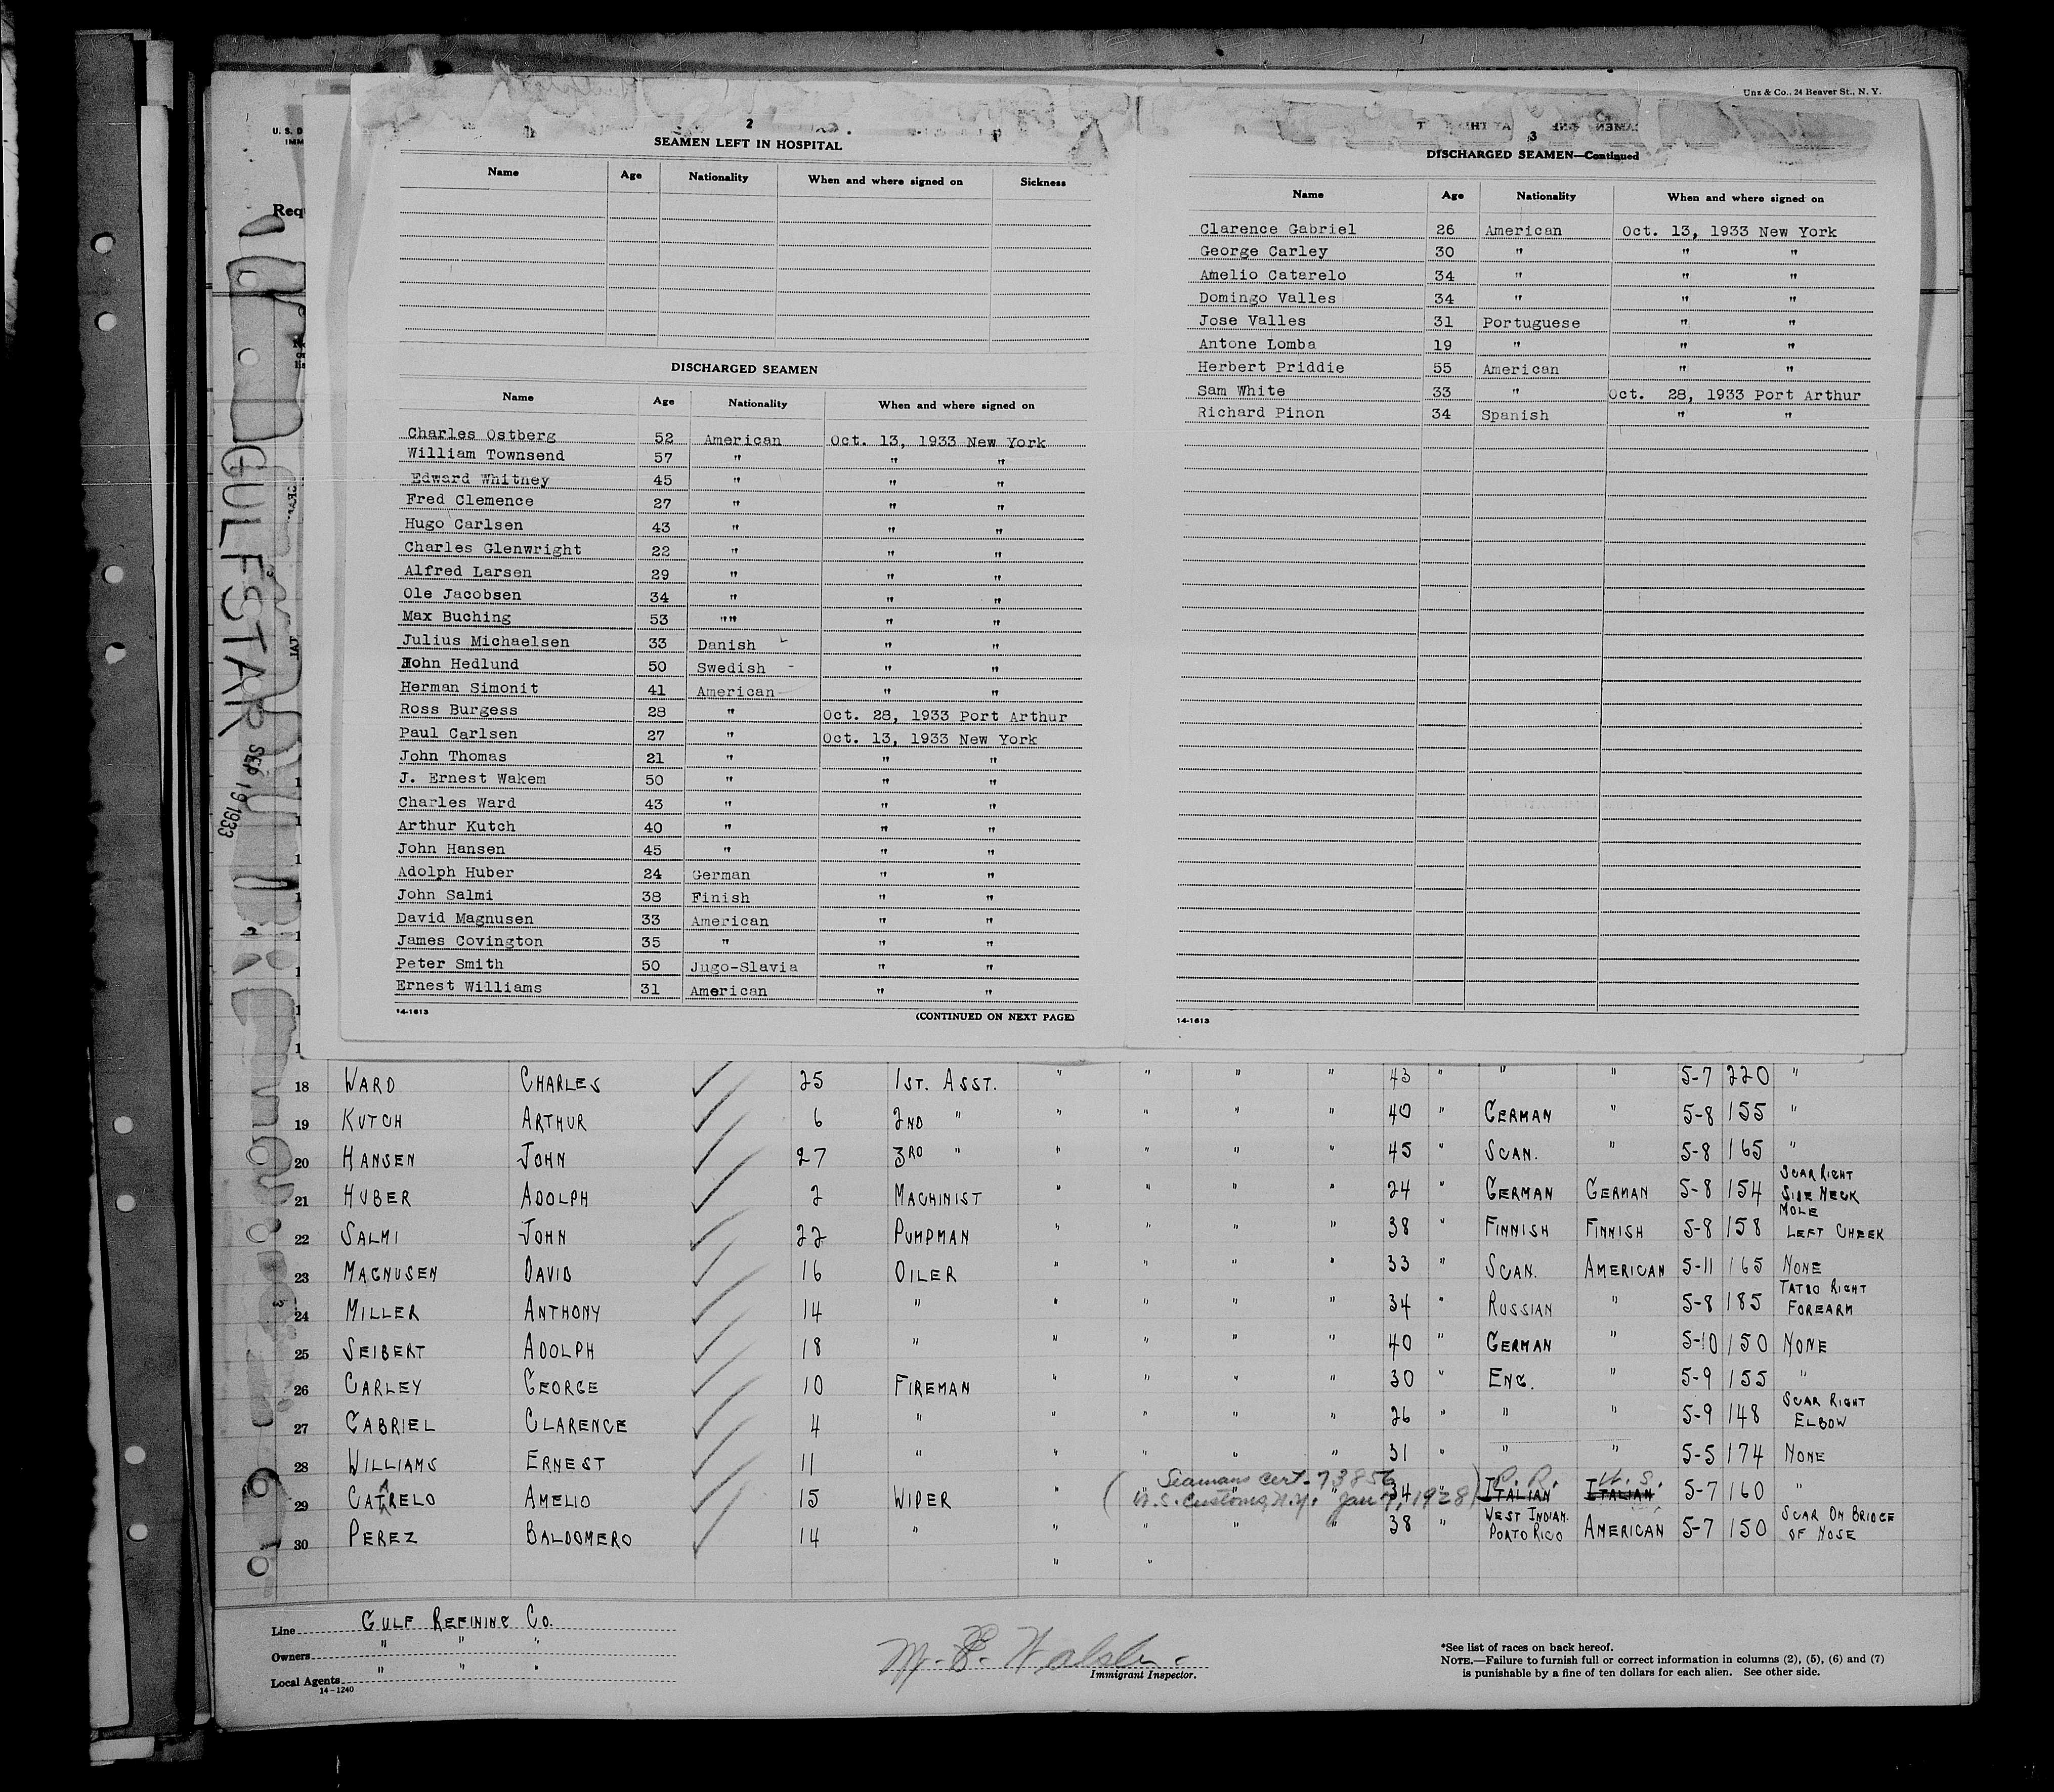 Unz & Co., 24 Beaver St., N. Y.
2
SEAMEN LEFT IN HOSPITAL
Name Age Nationality When and where signed on Sickness
DISCHARGED SEAMEN
Name Age Nationality When and where signed on
Charles Ostberg 52 American Oct. 13, 1933 New York
William Townsend 57 " " "
Edward Whitney 45 " " "
Fred Clemence 27 " " "
Hugo Carlsen 43 " " "
Charles Glenwright 22 " " "
Alfred Larsen 29 " " "
Ole Jacobsen 34 " " "
Max Buching 53 "" " "
Julius Michaelsen 33 Danish " "
John Hedlund 50 Swedish " "
Herman Simonit 41 American " "
Ross Burgess 28 " Oct. 28, 1933 Port Arthur
Paul Carlsen 27 " Oct. 13, 1933 New York
John Thomas 21 " " "
J. Ernest Wakem 50 " " "
Charles Ward 43 " " "
Arthur Kutch 40 " " "
John Hansen 45 " " "
Adolph Huber 24 German " "
John Salmi 38 Finish " "
David Magnusen 33 American " "
James Covington 35 " " "
Peter Smith 50 Jugo-Slavia " "
Ernest Williams 31 American " "
14-1613 (CONTINUED ON NEXT PAGE)
3
DISCHARGED SEAMEN—Continued
Name Age Nationality When and where signed on
Clarence Gabriel 26 American Oct. 13, 1933 New York
George Carley 30 " " "
Amelio Catarelo 34 " " "
Domingo Valles 34 " " "
Jose Valles 31 Portuguese " "
Antone Lomba 19 " " "
Herbert Priddie 55 American " "
Sam White 33 " Oct. 28, 1933 Port Arthur
Richard Pinon 34 Spanish " "
14-1613
GULFSTAR
SEP 19 1933
18 WARD CHARLES 25 1ST. ASST. " " " " 43 " " " 5-7 220 "
19 KUTCH ARTHUR 6 2ND " " " " " 40 " GERMAN " 5-8 155 "
20 HANSEN JOHN 27 3RD " " " " " 45 " SCAN. " 5-8 165 "
21 HUBER ADOLPH 2 MACHINIST " " " " 24 " GERMAN GERMAN 5-8 154 SCAR RIGHT SIDE NECK
22 SALMI JOHN 22 PUMPMAN " " " " 38 " FINNISH FINNISH 5-8 158 MOLE LEFT CHEEK
23 MAGNUSEN DAVID 16 OILER " " " " 33 " SCAN. AMERICAN 5-11 165 NONE
24 MILLER ANTHONY 14 " " " " " 34 " RUSSIAN " 5-8 185 TATOO RIGHT FOREARM
25 SEIBERT ADOLPH 18 " " " " " 40 " GERMAN " 5-10 150 NONE
26 CARLEY GEORGE 10 FIREMAN " " " " 30 " ENG. " 5-9 155 "
27 GABRIEL CLARENCE 4 " " " " " 26 " " " 5-9 148 SCAR RIGHT ELBOW
28 WILLIAMS ERNEST 11 " " " " " 31 " " " 5-5 174 NONE
(Seamans cert. 73856 P. R. U. S.
U.S. Customs, N.Y. Jan 7, 1928)
29 CATARELO AMELIO 15 WIPER " " " " 34 " ITALIAN ITALIAN 5-7 160 "
30 PEREZ BALDOMERO 14 " " " " " 38 " WEST INDIAN. PORTO RICO AMERICAN 5-7 150 SCAR ON BRIDGE OF NOSE
" "
Line GULF REFINING CO.
Owners " " "
Local Agents " " "
14-1240
Immigrant Inspector.
*See list of races on back hereof.
NOTE.—Failure to furnish full or correct information in columns (2), (5), (6) and (7)
is punishable by a fine of ten dollars for each alien. See other side.